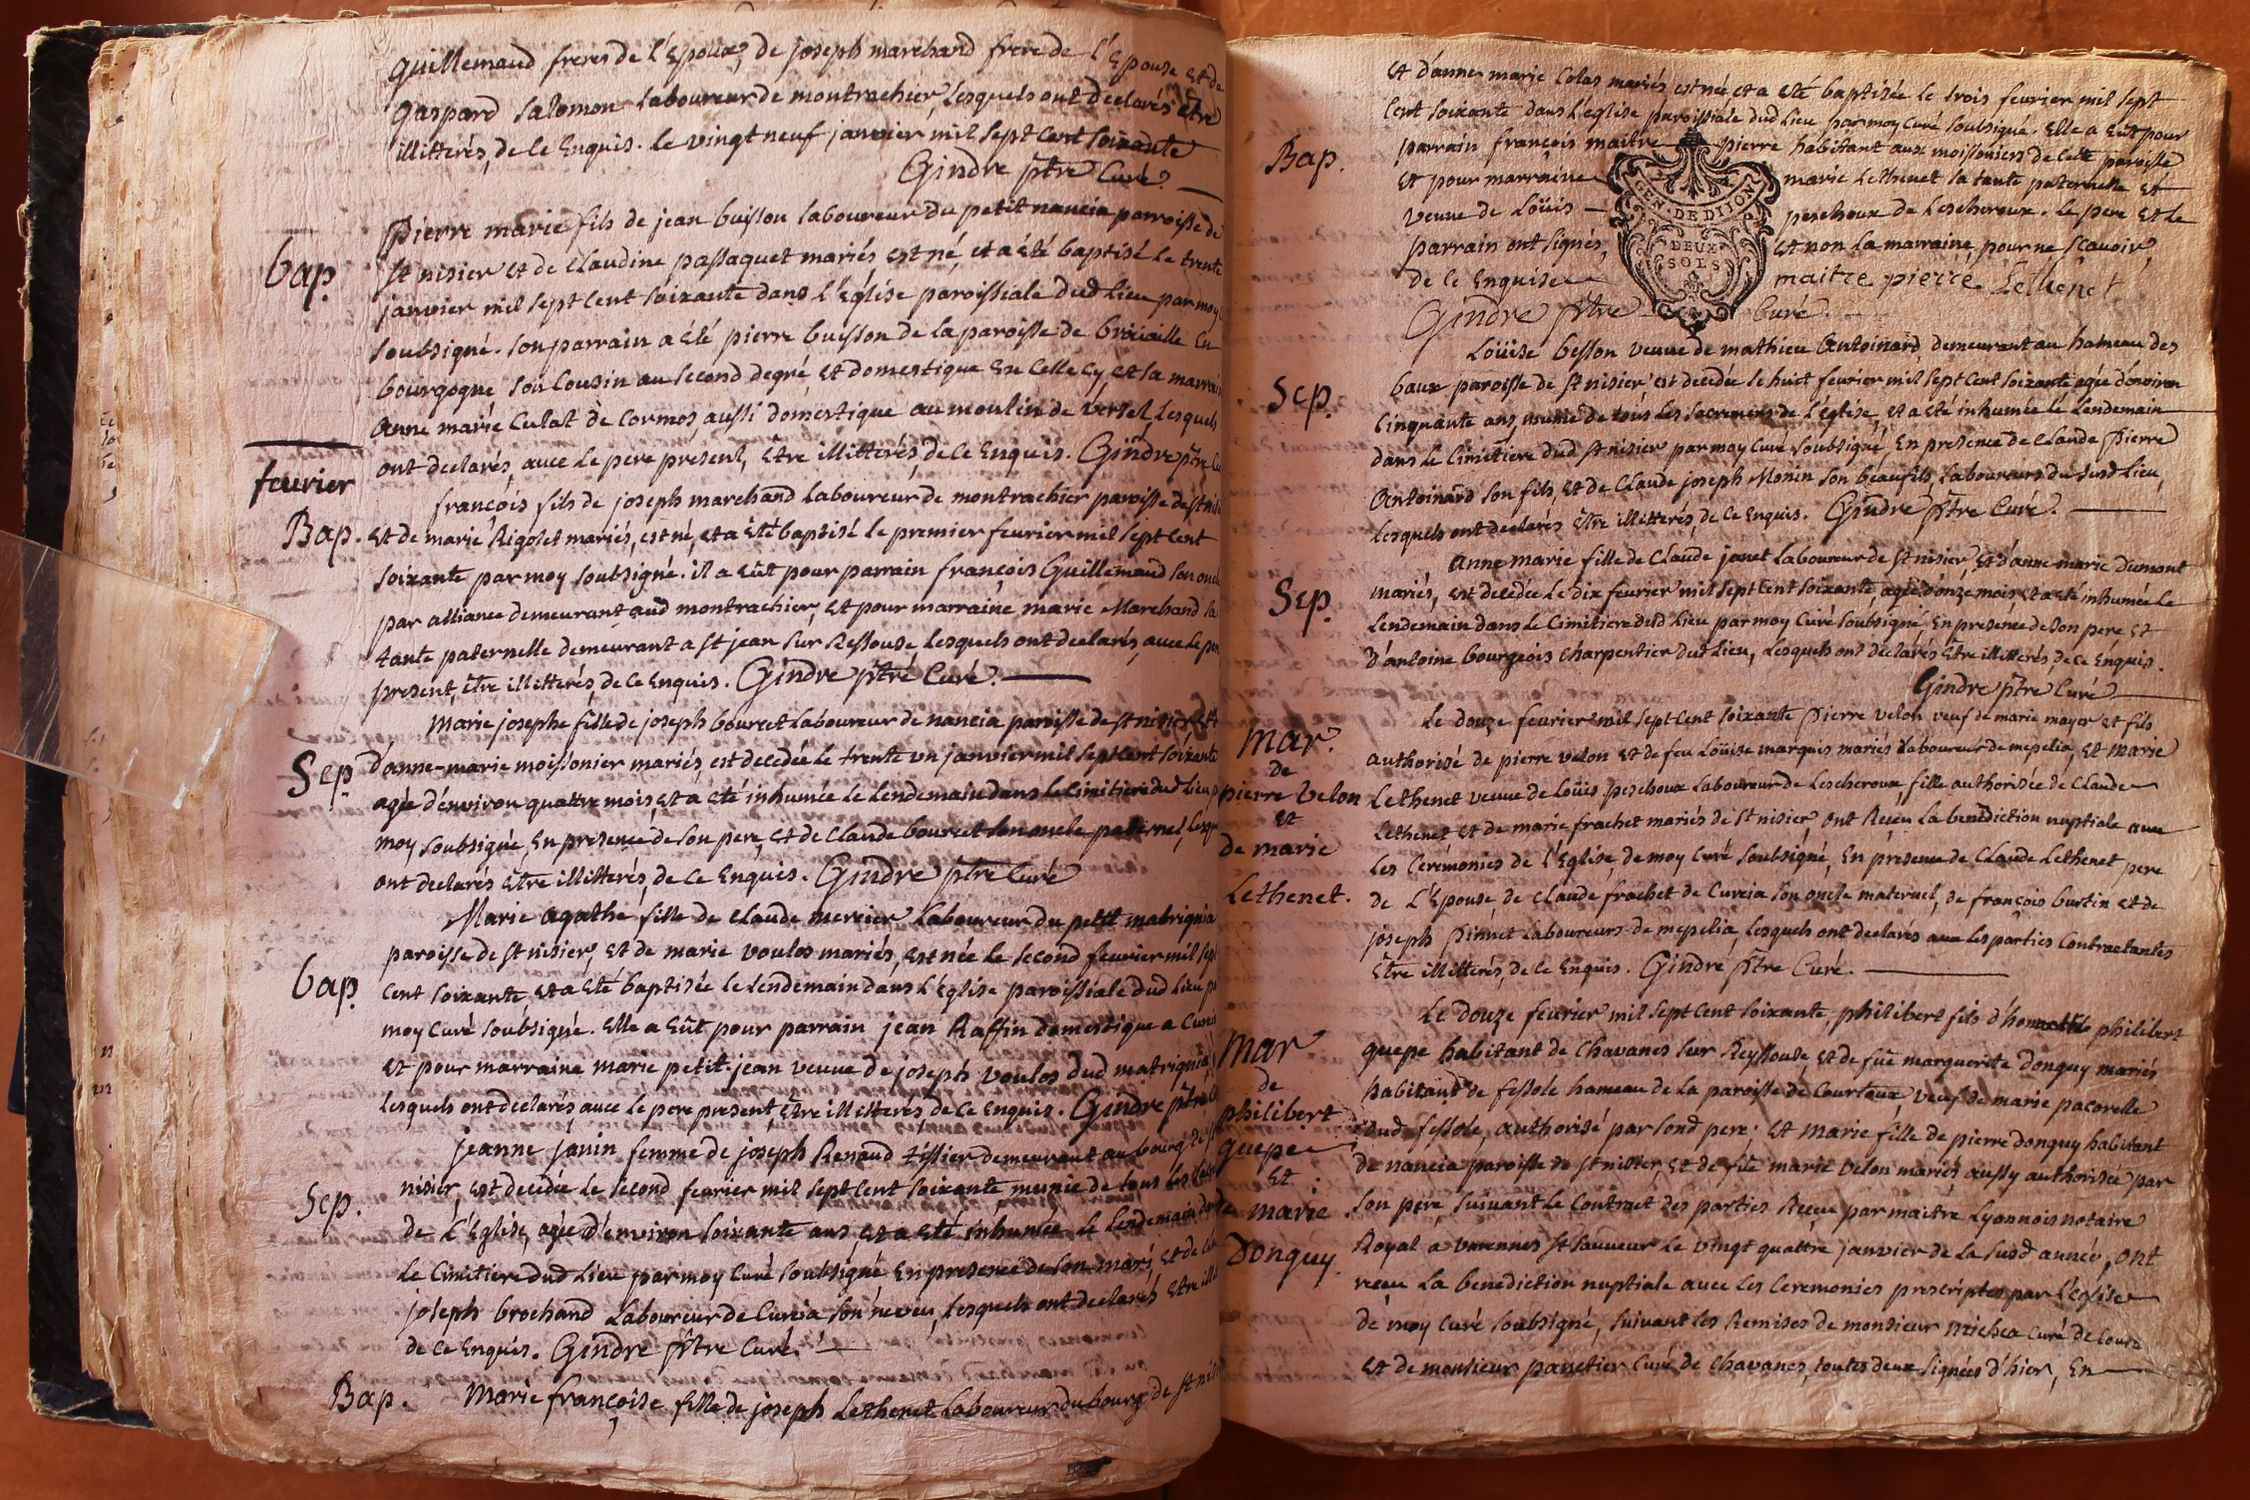 guillemaud freres de l'Epoux, de joseph marchand frere de l'Epouse et de
gaspard salomon laboureur de montrachier, lesquels ont declarés etre
illitterés, de ce Enquis. le vingt neuf janvier mil sept cent soixante
Gindre ptre Curé.
bap. Pierre marie fils de jean buisson laboureur du petit nancia parroisse de
st nisier et de claudine passaquet mariés est né, et a été baptisé le trente
janvier mil sept cent soixante dans l'Eglise paroissiale dud lieu par moy
soubsigné. son parrain a été pierre buisson de la paroisse de en
bourgogne son Cousin au second degré, et domestique En celle cy, et sa marraine
anne marie Cutat de Cormos, aussi domestique au moulin de versel, lesquels
ont declarés, avec le pere present, Etre illitterés, de ce Enquis. Gindre ptre
fevrier
françois fils de joseph marchand laboureur de montrachier paroisse de st
Bap. et de marie Rigolet mariés, est né, et a été baptisé le premier fevrier mil sept cent
soixante par moy soubsigné. il a eût pour parrain françois Guillemaud son oncle
par alliance demeurant aud montrachier, et pour marraine marie Marchand sa
tante paternelle demeurant a st jean sur Ressouse, lesquels ont declarés, avec le pere
present, être illitterés, de ce Enquis. Gindre ptre Curé.
Marie josephe fille de joseph bourcet laboureur de nancia paroisse de st nisier, et
Sep. d'anne-marie moissonier mariés, est decedée le trente un janvier mil sept cent soixante
agée d'environ quattre mois, et a eté inhumée le lendemain dans le cimitiere dud lieu, p
moy soubsigné, En presence de son pere, et de claude bourcet son oncle paternel, lesq
ont declarés Etre illitterés, de ce Enquis. Gindre ptre Curé
Marie agathe fille de claude mercier laboureur du petit matrignia
paroisse de st nisier, et de marie voulos mariés, est née le second fevrier mil sept
bap. cent soixante, et a eté baptisée le lendemain dans l'Eglise paroissiale dud lieu p
moy curé soubsigné. Elle a Eût pour parrain jean Raffin domestique a
et pour marraine marie petit-jean veuve de joseph voulos dud matrignia,
lesquels ont declarés, avec le pere present, Etre illitterés de ce Enquis. Gindre ptre
jeanne janin femme de joseph Renaud tissier demeurant au bourg de st
Sep. nisier, est decedée le second fevrier mil sept cent soixante, munie de tous les
de l'Eglise, agée d'environ soixante ans, et a eté inhumée le lendemain
le Cimitiere dud lieu par moy curé soubsigné En presence de son mari, et de
joseph brochand laboureur de Curcia son neveu, lesquels ont declarés Etre ill
de ce Enquis. Gindre ptre Curé.
Bap. Marie françoise fille de joseph Lethenet laboureur du bourg de st
et d'anne marie Colas mariés est née et a eté baptisée le trois fevrier mil sept
cent soixante dans l'Eglise paroissiale dud lieu par moy curé soubsigné. Elle a Eût pour
Bap. parrain françois maitre pierre habitant aux moissoniers de cette paroisse
et pour marraine marie Lethenet sa tante paternelle et
veuve de Loüis peschoux de Lescheroux. le pere et le
parrain ont signés, et non la marraine, pour ne sçavoir,
de ce Enquise maitre pierre Lethenet
Gindre ptre Curé.
GEN. DE DIJON
DEUX
SOLS
Loüise besson veuve de mathieu antoinard, demeurant au hameau des
Sep. baux paroisse de st nisier est decedée le huit fevrier mil sept cent soixante agée d'environ
Cinquante ans, munie de tous les sacremens de l'Eglise, et a eté inhumée le lendemain
dans le Cimitiere dud st nisier par moy curé soubsigné, En presence de claude Pierre
antoinard son fils, et de claude joseph Monin son beaufils, laboureurs du susd lieu,
lesquels ont declarés Etre illitterés, de ce Enquis. Gindre ptre Curé.
anne marie fille de claude janet laboureur de st nisier, et d'anne marie dumont
Sep. mariés, est decedée le dix fevrier mil sept cent soixante, agée d'onze mois, et a eté inhumée le
lendemain dans le Cimitiere dud lieu par moy curé soubsigné En presence de son pere et
d'antoine bourgeois charpentier dud lieu, lesquels ont declarés Etre illitterés, de ce Enquis.
Gindre ptre Curé
Le douze fevrier mil sept cent soixante Pierre velon veuf de marie moyer et fils
Mar. authorisé de pierre velon et de feu Loüise marquis mariés laboureur de mepelia, et Marie
de
pierre velon Lethenet veuve de Loüis peschoux laboureur de Lescheroux fille authorisée de claude
et Lethenet et de marie frachet mariés de st nisier, ont Reçeu la benediction nuptiale avec
de marie les Ceremonies de l'Eglise, de moy curé soubsigné, En presence de Claude Lethenet pere
Lethenet. de l'Epouse, de claude frachet de Curcia son oncle maternel, de françois burtin et de
joseph Pinnet laboureurs de mepelia, lesquels ont declarés avec les parties Contractantes
Etre illitterés, de ce Enquis. Gindre ptre Curé.
Le douze fevrier mil sept cent soixante, philibert fils d' philibert
Mar quepe habitant de Chavanes sur Reyssouse, et de fuë marguerite donguy mariés
de habitant de fessole hameau de la paroisse de Courtoux, veuf de marie pacorelle
philibert dud fessole, authorisé par sond pere; et Marie fille de pierre donguy habitant
quepe de nancia paroisse de st nisier, et de fuë marie velon mariés aussy authorisée par
et
de marie son pere, suivant le Contract des parties Reçeu par maitre Lyonnois notaire
Donguy. Royal a varennes st sauveur le vingt quattre janvier de la susd année, ont
reçeu la benediction nuptiale avec les ceremonies prescriptes par l'Eglise
de moy curé soubsigné, suivant les Remises de monsieur Curé de Cours
et de monsieur panetier curé de Chavanes, toutes deux signées d'hier, En